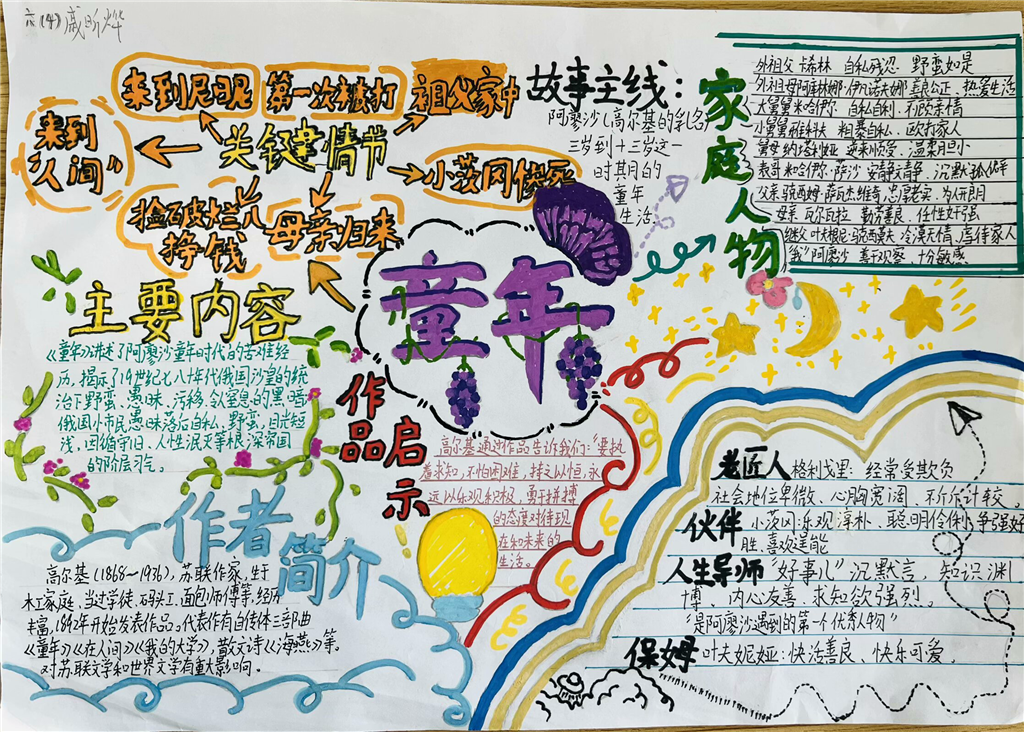 六(4)
来到尼日尼
第一次被打
祖父家中
来到
"人间"
关键情节
小茨冈惨死
捡百皮烂儿
挣钱
母亲归来
故事主线：
阿廖沙(高尔基的乳名)
三岁到十三岁这一
时其月的
童年
生活.
家庭人物
外祖父 卡希林 自私残忍 野蛮如是
外祖母阿库林娜·伊凡诺夫娜 善良公正,热爱生活
大舅舅米哈伊尔 自私自利.不顾亲情
小舅舅雅科夫 粗暴自私、殴打家人
舅母 纳塔利娅 逆来顺受、温柔胆小
表哥 米哈伊尔·萨沙 安静文静、沉默孤僻
父亲.骁西姆·萨杰维奇,忠厚老实、为人开朗
母亲 瓦尔瓦拉 勤劳善良、任性好强
继父 叶夫根尼·马克西莫夫 冷漠无情、虐待家人
"我"阿廖沙 善于观察、十分敏感
童年
主要内容
《童年》讲述了阿廖沙童年时代的苦难经
历,揭示了19世纪七八十年代俄国沙皇的统
治下野蛮、愚昧、污秽、令人窒息的黑暗
俄国小市民愚昧落后自私、野蛮、目光短
浅,因循守旧、人性泯灭等根深蒂固
的阶层习气。
作品启示
高尔基通过作品告诉我们:"要执
着求知,不怕困难,持之以恒,永
远以乐观积极,勇于拼搏
的态度对待现
在和未来的
生活。
作者
简介
高尔基(1868~1936),苏联作家,生于
木工家庭、当过学徒、码头工、面包师傅等,经历
丰富,1892年开始发表作品。代表作有自传体三部曲
《童年》《在人间》《我的大学》,散文诗《海燕》等。
对苏联文学和世界文学有重大影向。
老匠人 格利戈里：经常受其负
社会地位卑微、心胸宽阔、不斤斤计较.
伙伴 小茨冈:乐观淳朴、聪明伶俐、争强好
胜、喜欢逞能
人生导师 "好事儿"沉默言,知识渊
博、内心友善、求知欲强烈。
"是阿廖沙遇到的第一个优秀人物"
保姆 叶夫妮娅:快活善良、快乐可爱.